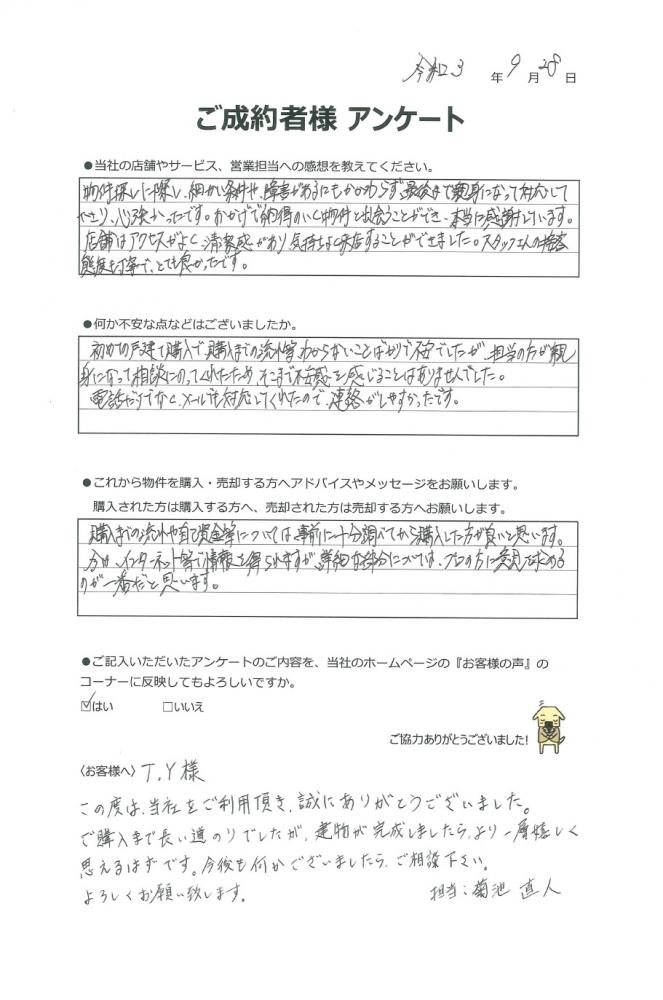 令和3年9月28日
ご成約者様 アンケート
●当社の店舗やサービス、営業担当への感想を教えてください。
物件探しに際し、細かい条件や、障害があるにもかかわらず最後まで親身になって対応して
下さり、心強かったです。おかげで納得のいく物件と出会うことができ、本当に感謝しています。
店舗はアクセスがよく、清潔感があり気持ちよく来店することができました。スタッフさんの接客
態度も丁寧で、とても良かったです。
●何か不安な点などはございましたか。
初めての戸建て購入で、購入までの流れ等、わからないことばかりで不安でしたが、担当の方が親
身になって相談にのってくれたため、そこまで不安感を感じることはありませんでした。
電話だけでなく、メールでも対応してくれたので、連絡がしやすかったです。
●これから物件を購入・売却する方へアドバイスやメッセージをお願いします。
購入された方は購入する方へ、売却された方は売却する方へお願いします。
購入までの流れや自己資金等については、事前に十分調べてから購入した方が良いと思います。
今は、インターネット等で情報を得られますが、詳細な部分については、プロの方に意見を求める
のが一番だと思います。
●ご記入いただいたアンケートのご内容を、当社のホームページの『お客様の声』の
コーナーに反映してもよろしいですか。
☑はい □いいえ
ご協力ありがとうございました!
〈お客様へ〉T.Y様
この度は、当社をご利用頂き、誠にありがとうございました。
ご購入まで長い道のりでしたが、建物が完成しましたら、より一層嬉しく
思えるはずです。今後も何かございましたら、ご相談下さい。
よろしくお願い致します。 担当:菊池 直人